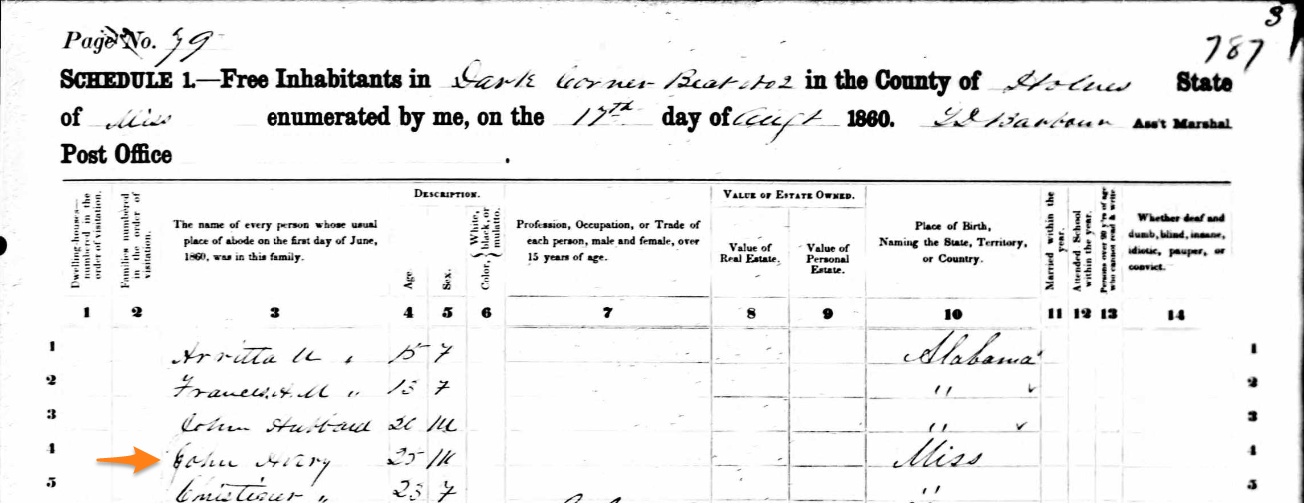 3
787
Page No. 79
SCHEDULE 1.—Free Inhabitants in Dark Corner Beat No 2 in the County of Holmes State
of Miss enumerated by me, on the 17th day of Augt 1860. Barbour Ass't Marshal
Post Office .
DESCRIPTION.
VALUE OF ESTATE OWNED.
Dwelling-houses—numbered in the order of visitation.
Families numbered in the order of visitation.
The name of every person whose usual
place of abode on the first day of June,
1860, was in this family.
Age.
Sex.
Color, { White, black, or mulatto.
Profession, Occupation, or Trade of
each person, male and female, over
15 years of age.
Value of
Real Estate.
Value of
Personal
Estate.
Place of Birth,
Naming the State, Territory,
or Country.
Married within the year.
Attended School within the year.
Persons over 20 y'rs of age who cannot read & write
Whether deaf and
dumb, blind, insane,
idiotic, pauper, or
convict.
1 2 3 4 5 6 7 8 9 10 11 12 13 14
1 Arritta " 15 F Alabama 1
2 Frances A. M " 13 F " 2
3 John Hubbard 20 M " 3
4 John Avery 25 M Miss 4
5 " 23 F " 5